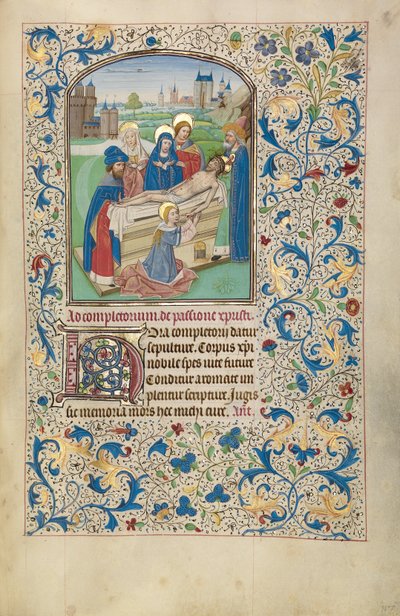 Ad completorium. de passione xpristi.
Hora completorii datur
sepulture. Corpus xpi
nobile spes vite future
Conditur aromate im
plentur scripture. Iugis
sit memoria mors hec michi cure. Ant.